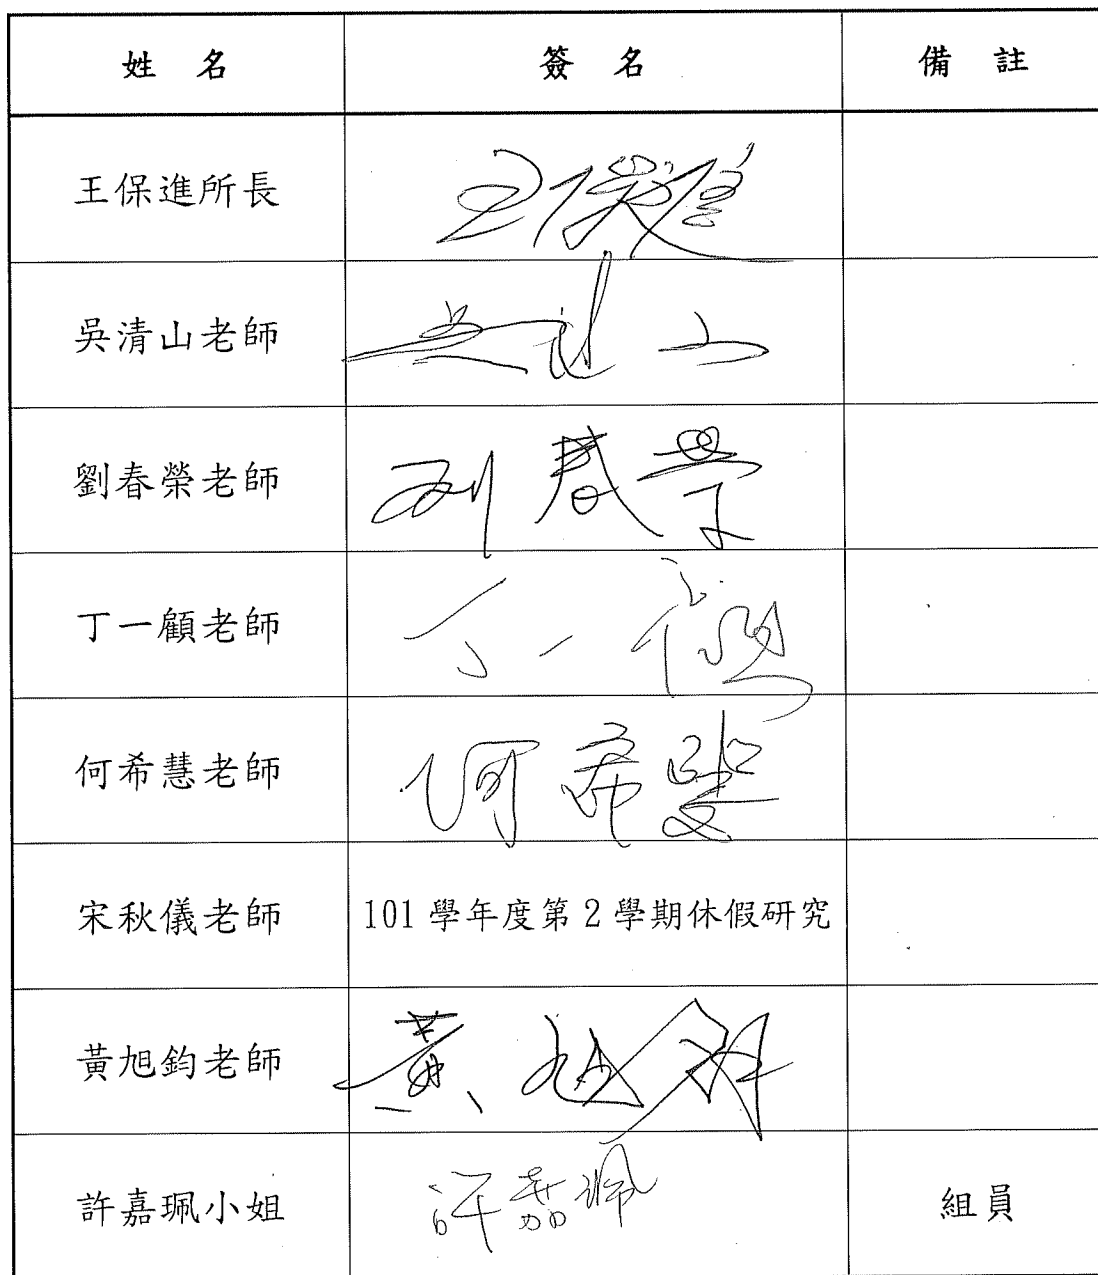 姓名 簽名 備註
王保進所長 王保進
吳清山老師 吳清山
劉春榮老師 刘春榮
丁一顧老師 丁一顧
何希慧老師 何希慧
宋秋儀老師 101學年度第2學期休假研究
黃旭鈞老師 黃旭鈞
許嘉珮小姐 許嘉珮 組員